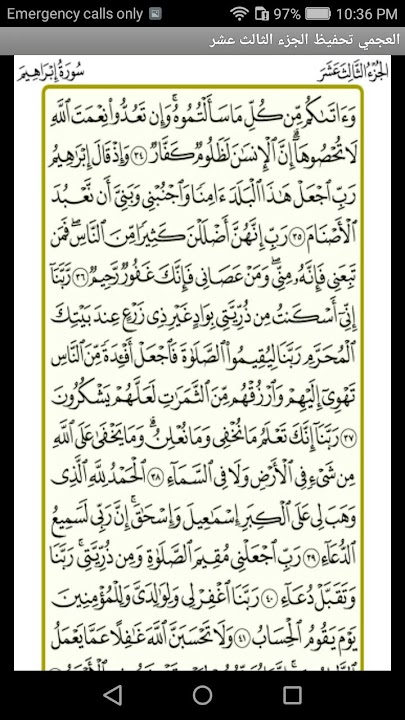 Emergency calls only 97% 10:36 PM
العجمي تحفيظ الجزء الثالث عشر
الجزء الثالث عشر سورة إبراهيم
وَءَاتَىٰكُم مِّن كُلِّ مَا سَأَلْتُمُوهُ ۚ وَإِن تَعُدُّوا۟ نِعْمَتَ ٱللَّهِ
لَا تُحْصُوهَآ ۗ إِنَّ ٱلْإِنسَٰنَ لَظَلُومٌ كَفَّارٌ ٣٤ وَإِذْ قَالَ إِبْرَٰهِيمُ
رَبِّ ٱجْعَلْ هَٰذَا ٱلْبَلَدَ ءَامِنًا وَٱجْنُبْنِى وَبَنِىَّ أَن نَّعْبُدَ
ٱلْأَصْنَامَ ٣٥ رَبِّ إِنَّهُنَّ أَضْلَلْنَ كَثِيرًا مِّنَ ٱلنَّاسِ ۖ فَمَن
تَبِعَنِى فَإِنَّهُۥ مِنِّى ۖ وَمَنْ عَصَانِى فَإِنَّكَ غَفُورٌ رَّحِيمٌ ٣٦ رَّبَّنَآ
إِنِّىٓ أَسْكَنتُ مِن ذُرِّيَّتِى بِوَادٍ غَيْرِ ذِى زَرْعٍ عِندَ بَيْتِكَ
ٱلْمُحَرَّمِ رَبَّنَا لِيُقِيمُوا۟ ٱلصَّلَوٰةَ فَٱجْعَلْ أَفْـِٔدَةً مِّنَ ٱلنَّاسِ
تَهْوِىٓ إِلَيْهِمْ وَٱرْزُقْهُم مِّنَ ٱلثَّمَرَٰتِ لَعَلَّهُمْ يَشْكُرُونَ
٣٧ رَبَّنَآ إِنَّكَ تَعْلَمُ مَا نُخْفِى وَمَا نُعْلِنُ ۗ وَمَا يَخْفَىٰ عَلَى ٱللَّهِ
مِن شَىْءٍ فِى ٱلْأَرْضِ وَلَا فِى ٱلسَّمَآءِ ٣٨ ٱلْحَمْدُ لِلَّهِ ٱلَّذِى
وَهَبَ لِى عَلَى ٱلْكِبَرِ إِسْمَٰعِيلَ وَإِسْحَٰقَ ۚ إِنَّ رَبِّى لَسَمِيعُ
ٱلدُّعَآءِ ٣٩ رَبِّ ٱجْعَلْنِى مُقِيمَ ٱلصَّلَوٰةِ وَمِن ذُرِّيَّتِى ۚ رَبَّنَا
وَتَقَبَّلْ دُعَآءِ ٤٠ رَبَّنَا ٱغْفِرْ لِى وَلِوَٰلِدَىَّ وَلِلْمُؤْمِنِينَ
يَوْمَ يَقُومُ ٱلْحِسَابُ ٤١ وَلَا تَحْسَبَنَّ ٱللَّهَ غَٰفِلًا عَمَّا يَعْمَلُ